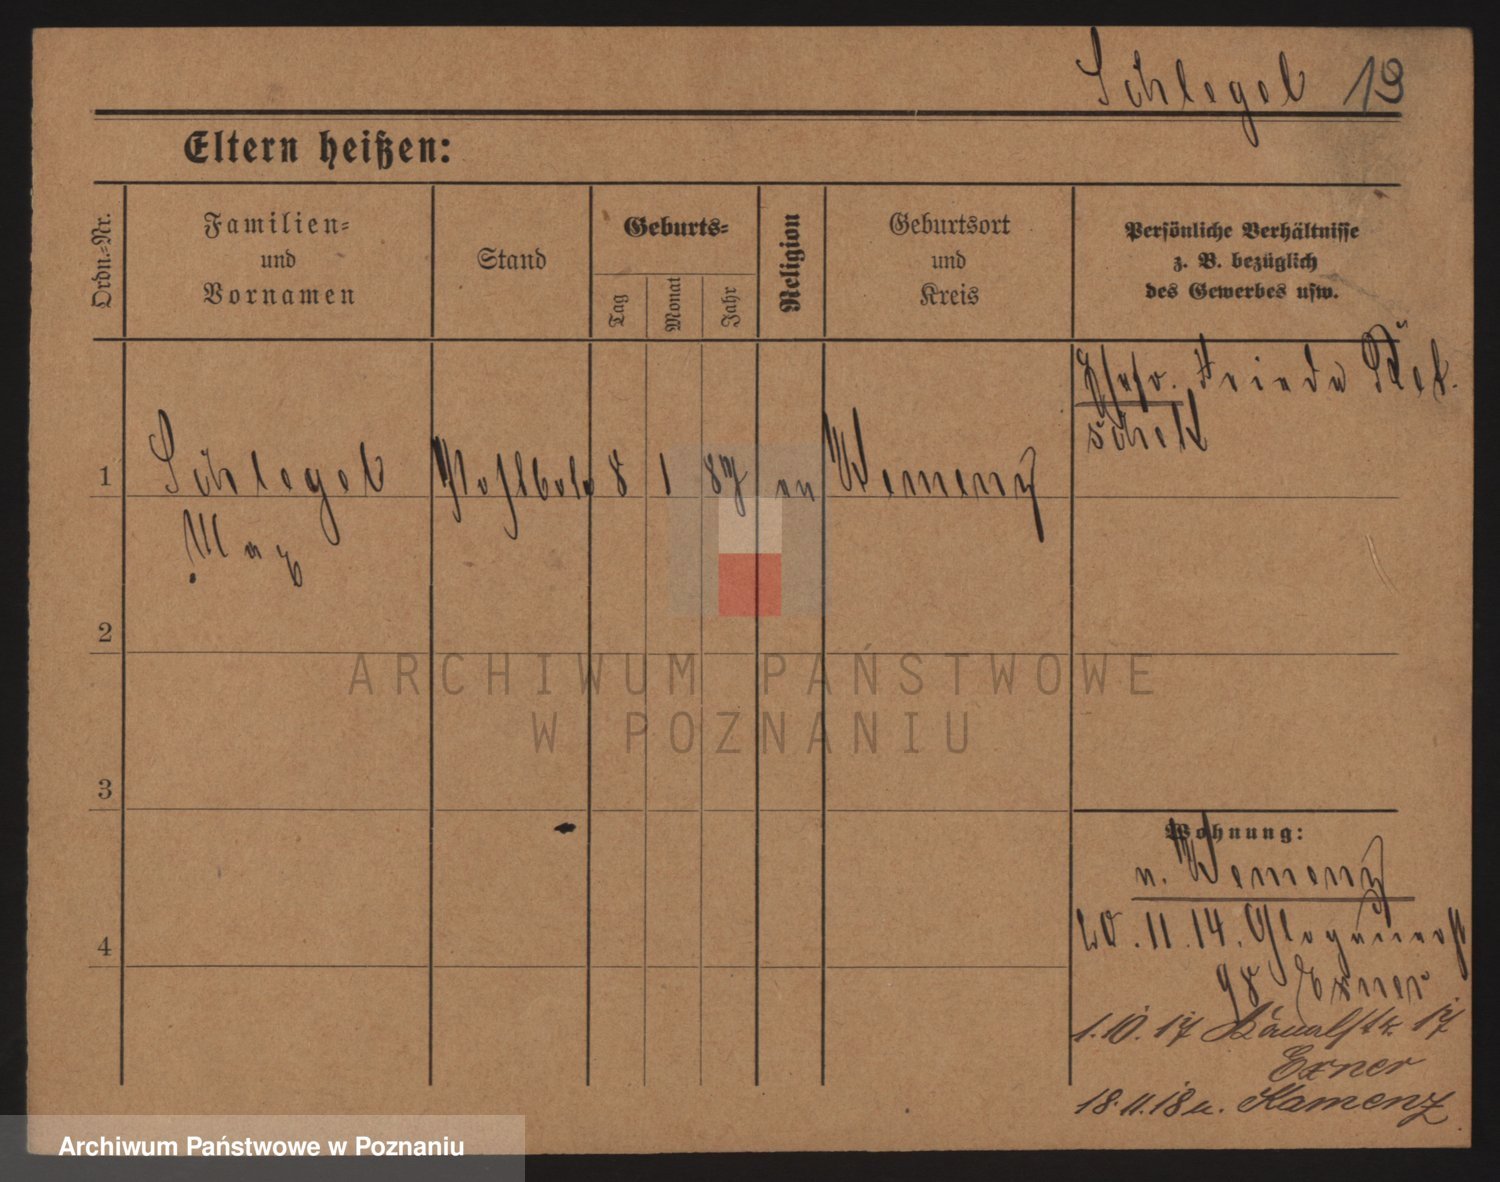 Schlegel 19
Eltern heißen:
Ordn.-Nr.
Familien-
und
Vornamen
Stand
Geburts-
Tag
Monat
Jahr
Religion
Geburtsort
und
Kreis
Persönliche Verhältnisse
z. B. bezüglich
des Gewerbes usw.
1
Schlegel
Max
8
1
87
ev
Kemenz
Ehefr. Frieda
2
3
4
Wohnung:
n. Kemenz
20.11.14. Glogauerst
98 Exner
1.10.17 Kanalstr. 17
Exner
18.11.18 n. Kamenz
ARCHIWUM PAŃSTWOWE
W POZNANIU
Archiwum Państwowe w Poznaniu